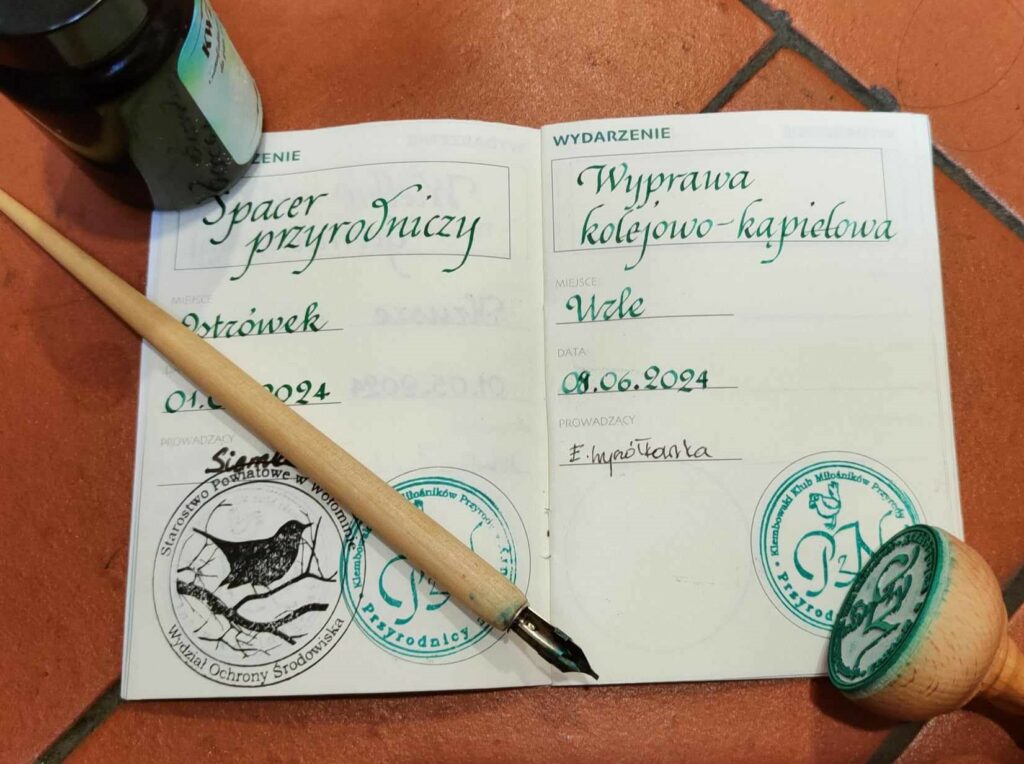 KW
ZENIE
Spacer
przyrodniczy
MIEJSCE
Ostrówek
01.0 .2024
PROWADZĄCY
Starostwo Powiatowe w Wołominie
Wydział Ochrony Środowiska
Klembowski Klub Miłośników Przyrody
PzN
Przyrodnicy
WYDARZENIE
Wyprawa
kolejowo-kąpielowa
MIEJSCE
Urle
DATA
08.06.2024
PROWADZĄCY
Klembowski Klub Miłośników Przyrody
PzN
Przyrodnicy